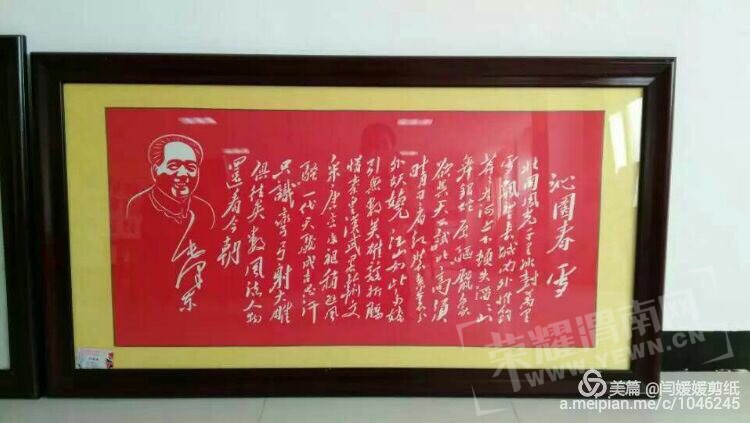 沁園春 雪
北国风光千里冰封万里
雪飘望长城内外惟余
莽莽大河上下顿失滔滔山
舞银蛇原驱腊象
欲与天公试比高须
晴日看红装素裹分
外妖娆江山如此多娇
引无数英雄竞折腰
惜秦皇漢武略输文
采唐宗宋祖稍逊风
骚一代天骄成吉思汗
只識弯弓射大雕
俱往矣数风流人物
還看今朝
毛泽东
荣耀渭南网
美篇 @闫媛媛剪纸
a.meipian.me/c/1046245